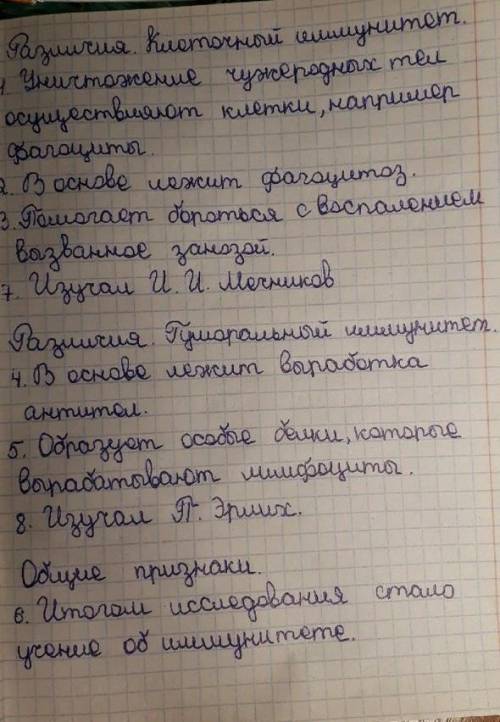 Различия. Клеточный иммунитет.
1. Уничтожение чужеродных тел
осуществляют клетки, например
фагоциты.
2. В основе лежит фагоцитоз.
3. Помогает бороться с воспалением
вызванное занозой.
7. Изучал И. И. Мечников
Различия. Гуморальный иммунитет.
4. В основе лежит выработка
антител.
5. Образует особые белки, которые
вырабатывают лимфоциты.
8. Изучал П. Эрлих.
Общие признаки.
6. Итогом исследования стало
учение об иммунитете.